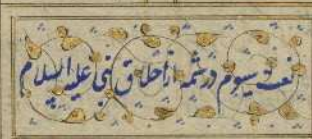 نعت سیوم در شمهٔ از اخلاق نبی علیه السلام